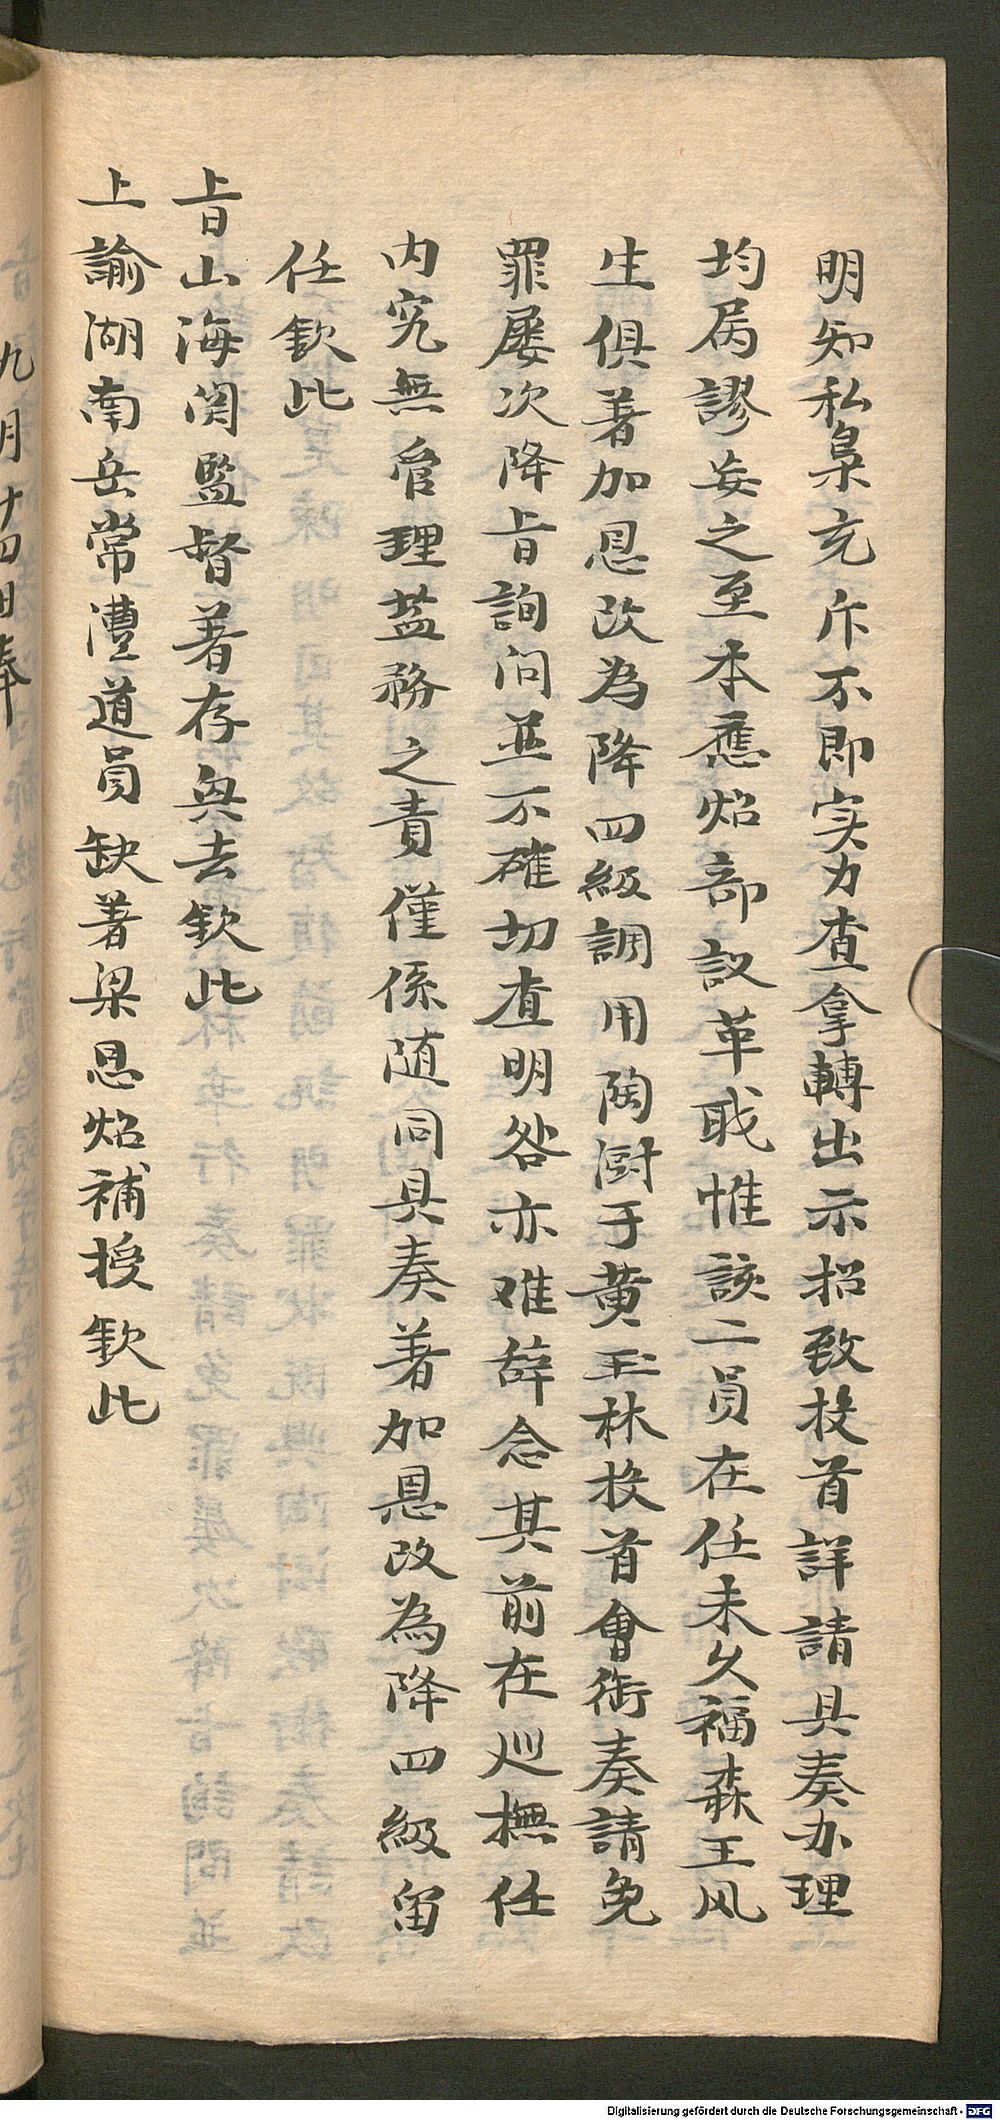 明知私梟充斥不即实力查拿轉出示招致投首詳請具奏办理
均属謬妄之至本應焰部议革戢惟該二員在任未久福森王风
生俱著加恩改為降四級調用陶澍于黄玉林投首會銜奏請免
罪屡次降旨詢问並不確切查明咎亦难辞念其前在廵撫任
内究無管理盐務之責僅係随同具奏著加恩改為降四級留
任欽此
旨山海関監督著存與去欽此
上諭湖南岳常澧道員缺著梁恩焰補授欽此
九月十四日奉
Digitalisierung gefördert durch die Deutsche Forschungsgemeinschaft - DFG